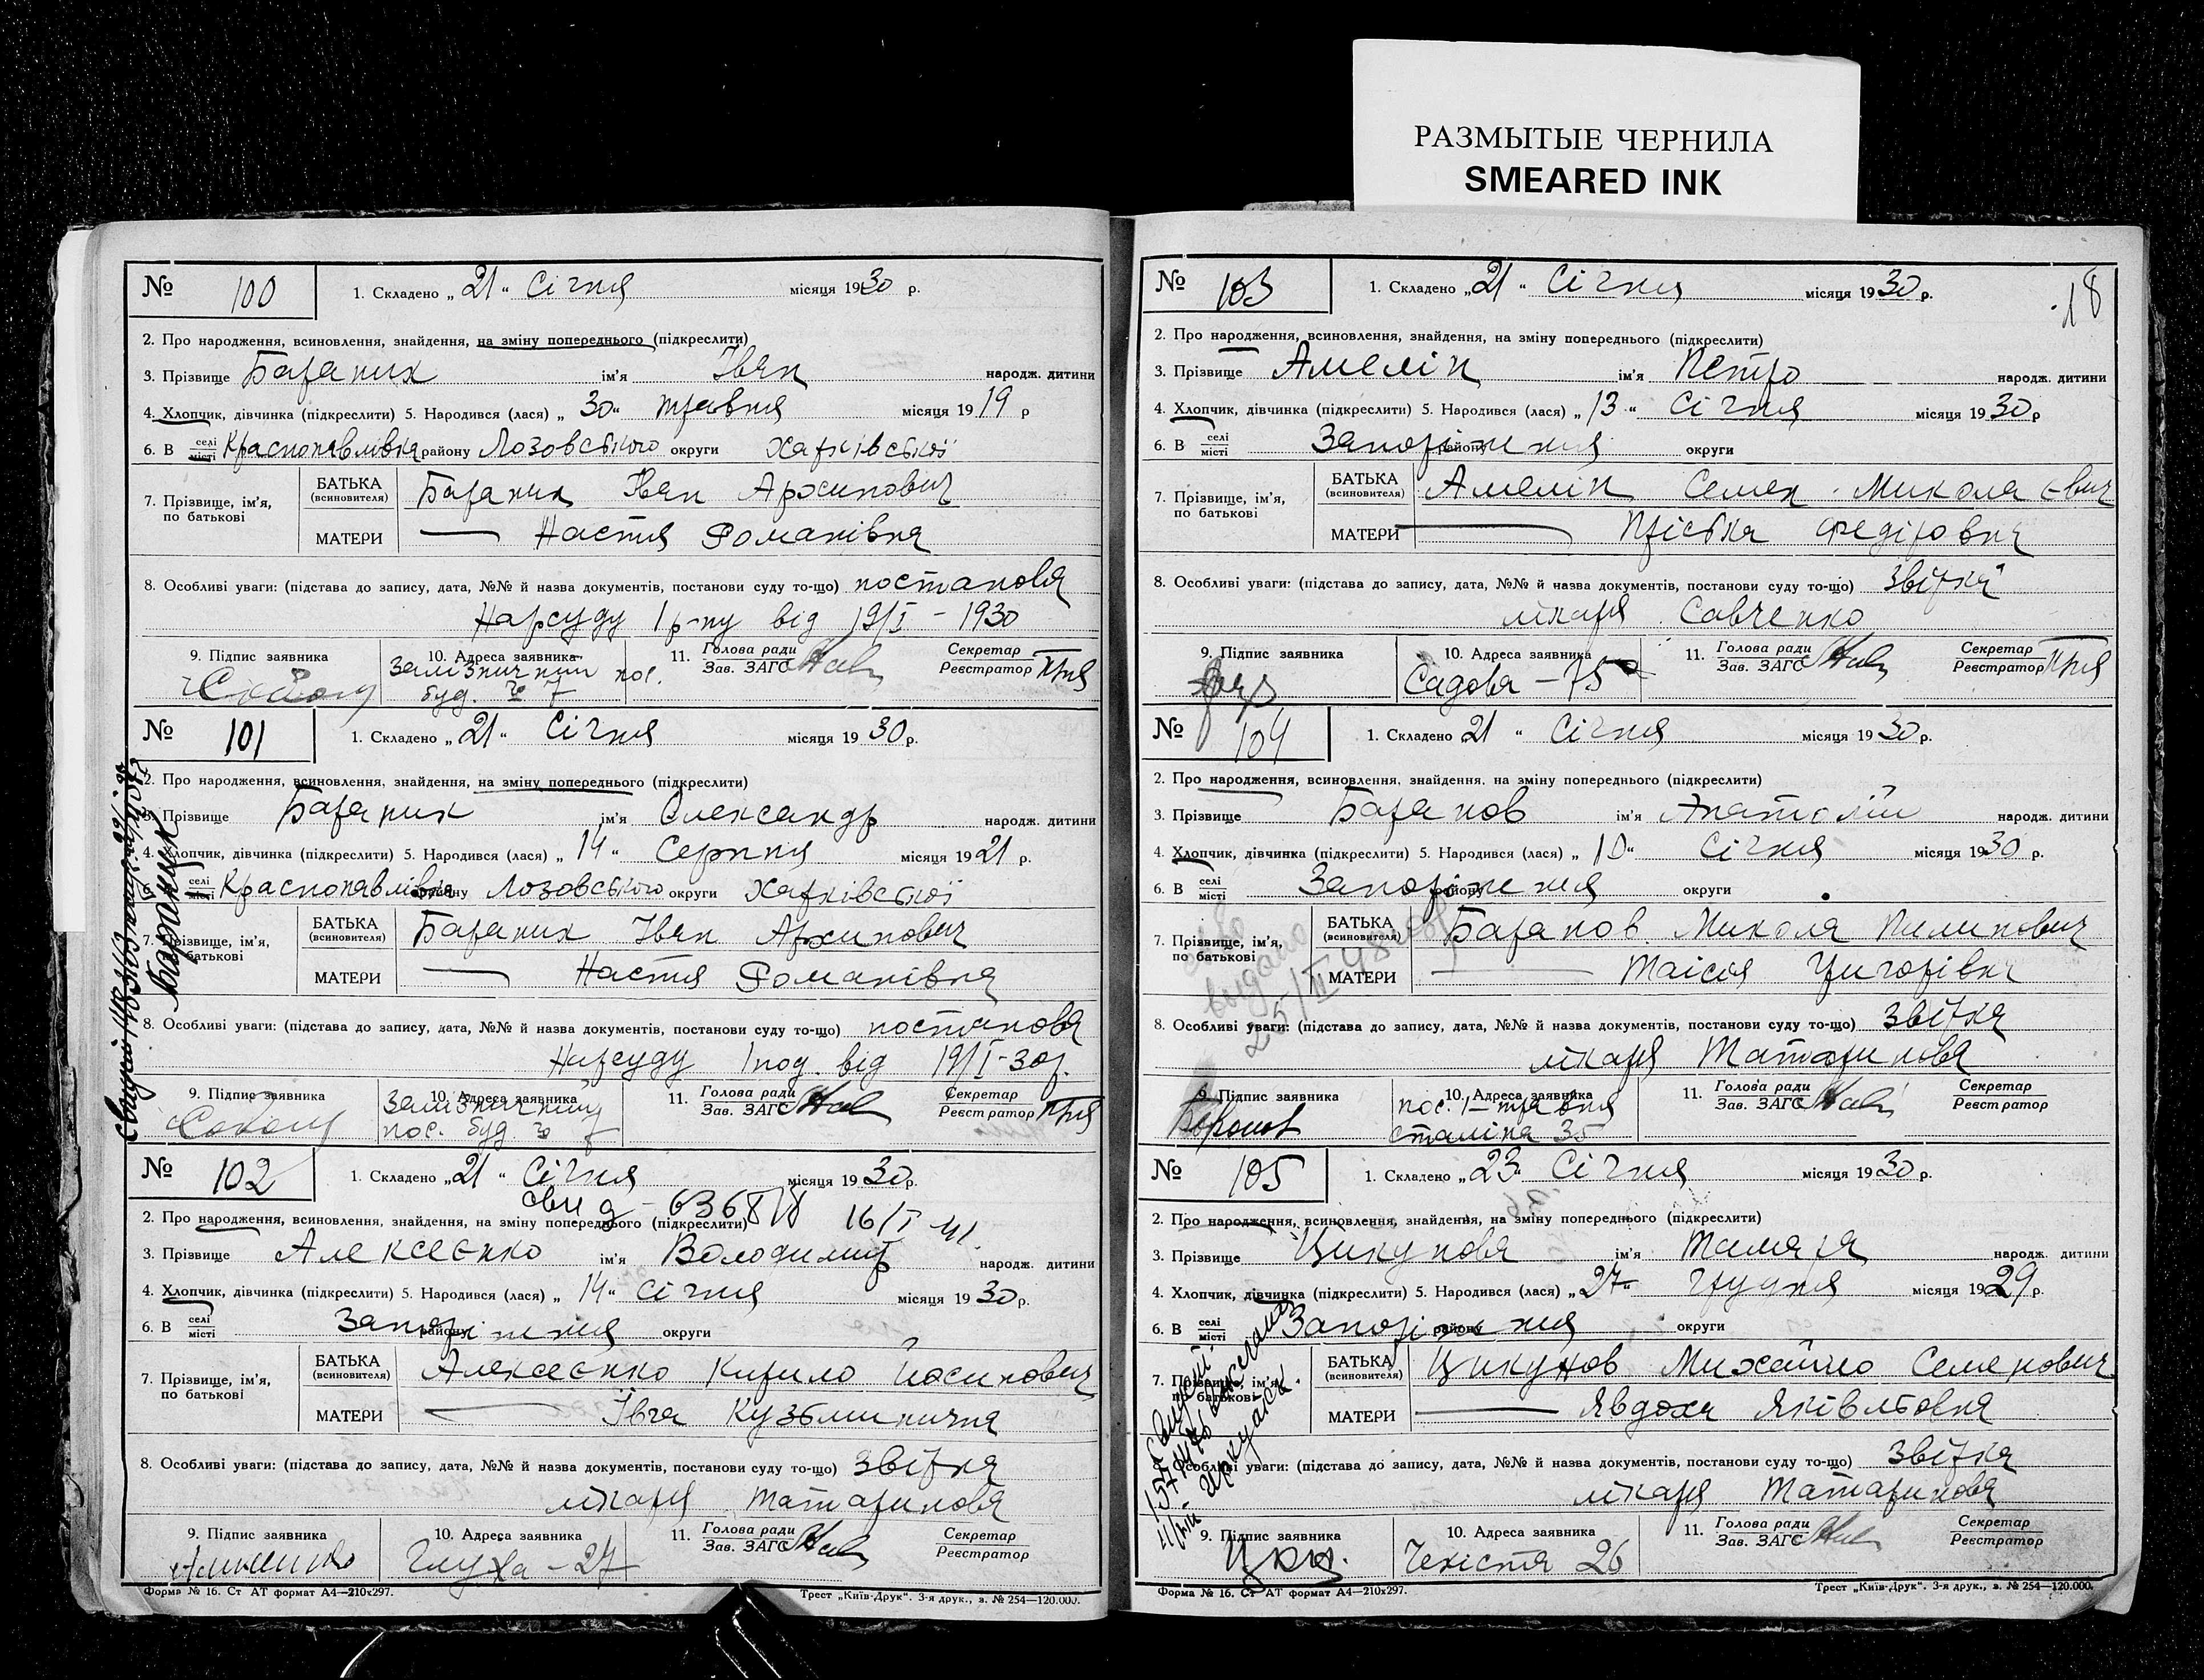 РАЗМЫТЫЕ ЧЕРНИЛА
SMEARED INK
№ 100 1. Складено „21“ Січня місяця 1930 р.
2. Про народження, всиновлення, знайдення, на зміну попереднього (підкреслити)
3. Прізвище Бараник ім'я Іван народж. дитини
4. Хлопчик, дівчинка (підкреслити) 5. Народився (лася) „30“ травня місяця 1919 р
6. В селі місті Краснопавлівка району Лозовського округи Харківської
7. Прізвище, ім'я, по батькові
БАТЬКА (всиновителя) Бараник Іван Архипович
МАТЕРИ — Настя Романівна
8. Особливі уваги: (підстава до запису, дата, №№ й назва документів, постанови суду то-що) постанова
Нарсуду 1 р-ну від 19/I - 1930
9. Підпис заявника 10. Адреса заявника 11. Голова ради Зав. ЗАГС Секретар Реєстратор
Залізничний пос.
буд. № 7
№ 101 1. Складено „21“ Січня місяця 1930 р.
2. Про народження, всиновлення, знайдення, на зміну попереднього (підкреслити)
3. Прізвище Бараник ім'я Олександр народж. дитини
4. Хлопчик, дівчинка (підкреслити) 5. Народився (лася) „14“ Серпня місяця 1921 р.
6. В селі місті Краснопавлівка району Лозовського округи Харківської
7. Прізвище, ім'я, по батькові
БАТЬКА (всиновителя) Бараник Іван Архипович
МАТЕРИ — Настя Романівна
8. Особливі уваги: (підстава до запису, дата, №№ й назва документів, постанови суду то-що) постанова
Нарсуду 1 від 19/I-30р.
9. Підпис заявника 10. Адреса заявника 11. Голова ради Зав. ЗАГС Секретар Реєстратор
Залізничний
пос. буд. № 7
Бараник
№ 102 1. Складено „21“ Січня місяця 1930 р.
свид - 636878 16/I 41.
2. Про народження, всиновлення, знайдення, на зміну попереднього (підкреслити)
3. Прізвище Алексєєнко ім'я Володимир народж. дитини
4. Хлопчик, дівчинка (підкреслити) 5. Народився (лася) „14“ Січня місяця 1930 р.
6. В селі місті Запоріжжя району округи
7. Прізвище, ім'я, по батькові
БАТЬКА (всиновителя) Алексєєнко Кирило Йосипович
МАТЕРИ — Івга Кузьминична
8. Особливі уваги: (підстава до запису, дата, №№ й назва документів, постанови суду то-що) Звітка
лікаря Татаринова
9. Підпис заявника 10. Адреса заявника 11. Голова ради Зав. ЗАГС Секретар Реєстратор
Глуха - 27
Форма № 16. Ст АТ формат А4—210х297. Трест „Київ-Друк“. 3-я друк., з. № 254—120.000.
18
№ 103 1. Складено „21“ Січня місяця 1930 р.
2. Про народження, всиновлення, знайдення, на зміну попереднього (підкреслити)
3. Прізвище Амелін ім'я Петро народж. дитини
4. Хлопчик, дівчинка (підкреслити) 5. Народився (лася) „13“ Січня місяця 1930 р
6. В селі місті Запоріжжя району округи
7. Прізвище, ім'я, по батькові
БАТЬКА (всиновителя) Амелін Семен Миколаєвич
МАТЕРИ — Пріська Федіровна
8. Особливі уваги: (підстава до запису, дата, №№ й назва документів, постанови суду то-що) Звітка
лікаря Савченко
9. Підпис заявника 10. Адреса заявника 11. Голова ради Зав. ЗАГС Секретар Реєстратор
Садова - 75
№ 104 1. Складено 21 “ Січня місяця 1930 р.
2. Про народження, всиновлення, знайдення, на зміну попереднього (підкреслити)
3. Прізвище Баранов ім'я Анатолій народж. дитини
4. Хлопчик, дівчинка (підкреслити) 5. Народився (лася) „10“ Січня місяця 1930 р.
6. В селі місті Запоріжжя району округи
7. Прізвище, ім'я, по батькові
БАТЬКА (всиновителя) Баранов Микола Пилипович
МАТЕРИ — Таісія Григорівна
8. Особливі уваги: (підстава до запису, дата, №№ й назва документів, постанови суду то-що) Звітка
лікаря Татаринова
9. Підпис заявника 10. Адреса заявника 11. Голова ради Зав. ЗАГС Секретар Реєстратор
пос. 1-травня
Сталіна 35
№ 105 1. Складено „23“ Січня місяця 1930 р.
2. Про народження, всиновлення, знайдення, на зміну попереднього (підкреслити)
3. Прізвище Цикунова ім'я Тамара народж. дитини
4. Хлопчик, дівчинка (підкреслити) 5. Народився (лася) „27“ грудня місяця 1929 р.
6. В селі місті Запоріжжя району округи
7. Прізвище, ім'я, по батькові
БАТЬКА (всиновителя) Цикунов Михайло Семенович
МАТЕРИ — Явдоха Яківлєвна
8. Особливі уваги: (підстава до запису, дата, №№ й назва документів, постанови суду то-що) Звітка
лікаря Татаринова
9. Підпис заявника 10. Адреса заявника 11. Голова ради Зав. ЗАГС Секретар Реєстратор
Чекіста 26
Форма № 16. Ст АТ формат А4—210х297. Трест „Київ-Друк“. 3-я друк., з. № 254—120.000.